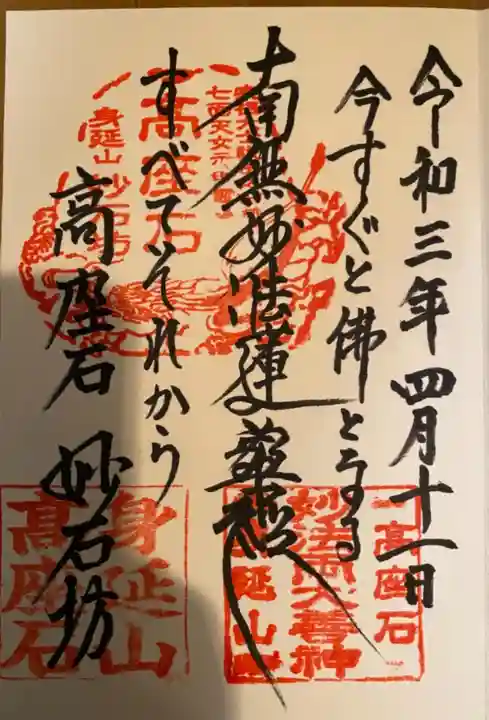 令和三年四月十一日
今すぐと佛となる
南無妙法蓮華経
すべてそれから
高座石 妙石坊
高座石
身延山
一高座石
妙法両大善神
身延山
高座石